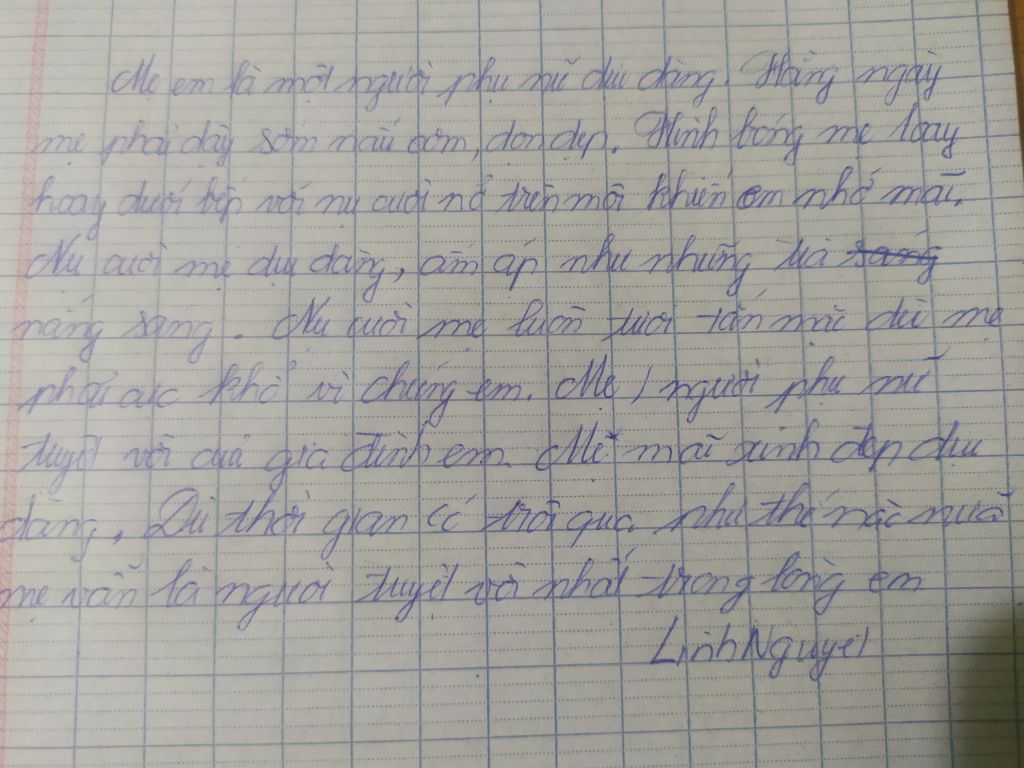 Mẹ em là một người phụ nữ dịu dàng. Hằng ngày
mẹ phải dậy sớm nấu cơm, dọn dẹp. Hình bóng mẹ loay
hoay dưới bếp với nụ cười nở trên môi khiến em nhớ mãi.
Nụ cười mẹ dịu dàng, ấm áp như những tia sáng
nắng sáng. Nụ cười mẹ luôn tươi tắn mặc dù mẹ
phải cực khổ vì chúng em. Mẹ, người phụ nữ
tuyệt vời của gia đình em. Mẹ mãi xinh đẹp dịu
dàng, Dù thời gian có trôi qua như thế nào nữa
mẹ vẫn là người tuyệt vời nhất trong lòng em
Linh Nguyệt